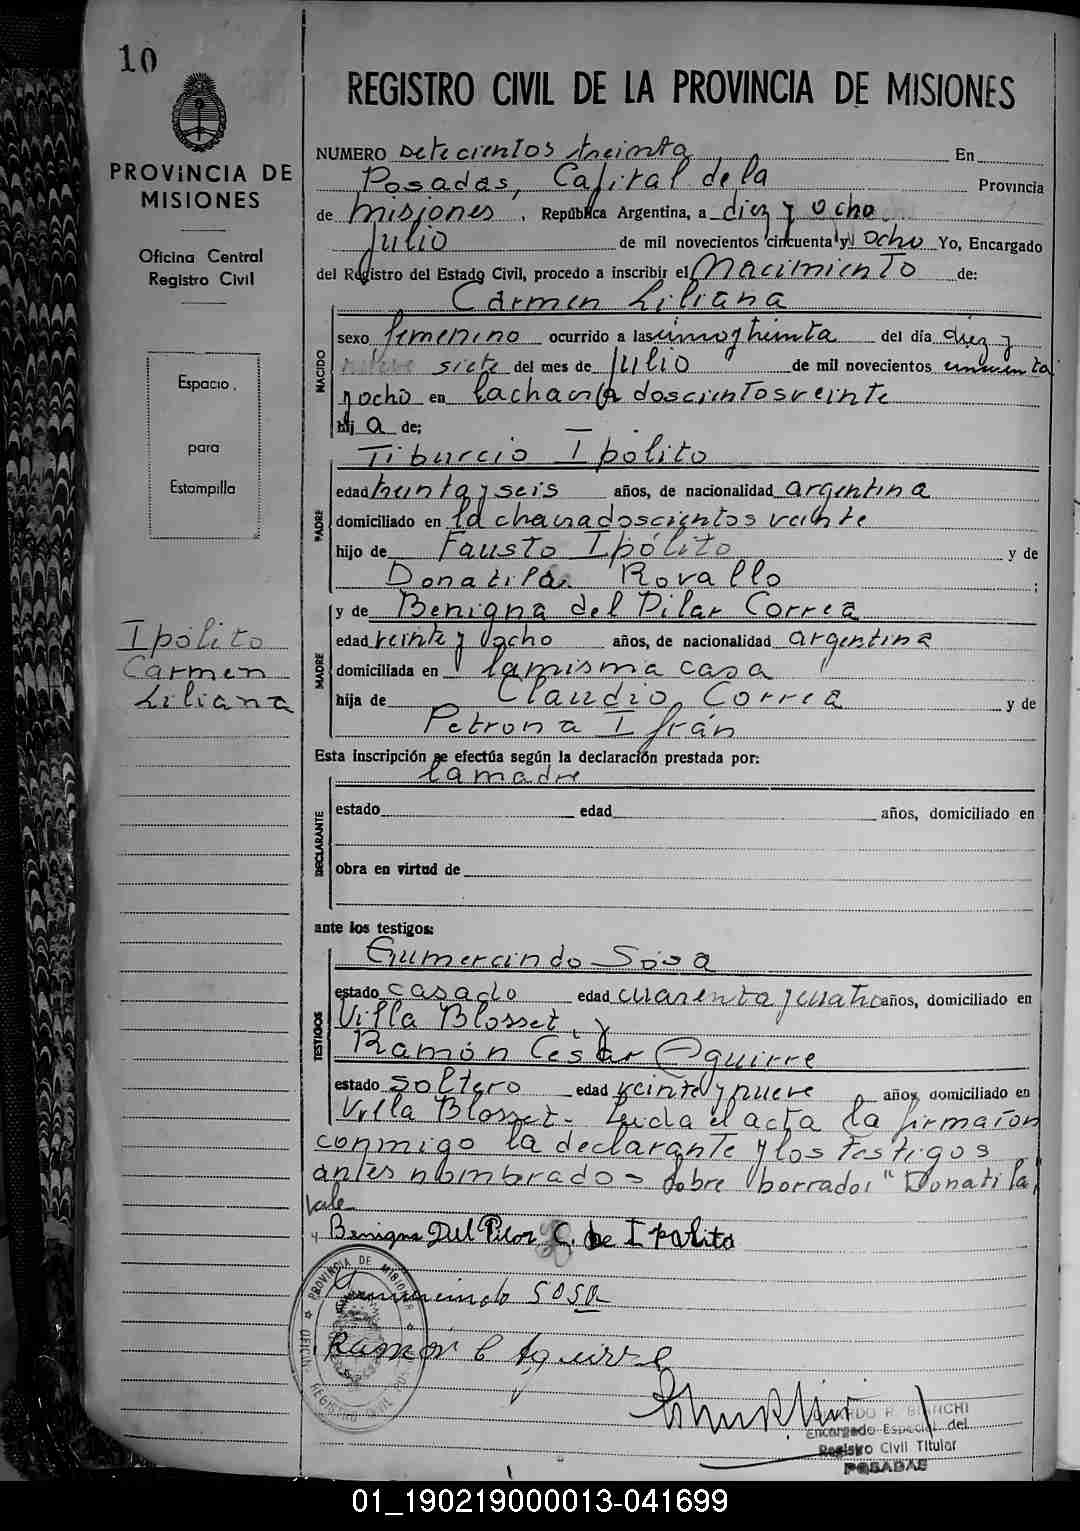 10
PROVINCIA DE
MISIONES
Oficina Central
Registro Civil
Espacio
para
Estampilla
Ipólito
Carmen
Liliana
REGISTRO CIVIL DE LA PROVINCIA DE MISIONES
NUMERO Setecientos treinta En
Posadas, Capital de la Provincia
de Misiones. República Argentina, a diez y ocho
Julio de mil novecientos cincuenta y ocho Yo, Encargado
del Registro del Estado Civil, procedo a inscribir el Nacimiento de:
Carmen Liliana
NACIDO
sexo femenino ocurrido a las uno y treinta del día diez y
siete del mes de Julio de mil novecientos cincuenta
y ocho en la chacra doscientos veinte
hij a de:
PADRE
Tiburcio Ipólito
edad treinta y seis años, de nacionalidad argentina
domiciliado en la chacra doscientos veinte
hijo de Fausto Ipólito y de
Donatila Rovallo ;
MADRE
y de Benigna del Pilar Correa
edad veinte y ocho años, de nacionalidad argentina
domiciliada en la misma casa
hija de Claudio Correa y de
Petrona Ifrán
Esta inscripción se efectúa según la declaración prestada por:
la madre
DECLARANTE
estado edad años, domiciliado en
obra en virtud de
ante los testigos:
TESTIGOS
Gumercindo Sosa
estado casado edad cuarenta y cuatro años, domiciliado en
Villa Blosset, y
Ramón Cesar Aguirre
estado soltero edad veinte y nueve años, domiciliado en
Villa Blosset - Leida el acta la firmaron
conmigo la declarante y los testigos
antes nombrado - Sobre borrado: "Donatila"
Vale
Benigna Del Pilar C. de Ipolito
Gumercindo SOSA
Ramón C Aguirre
PROVINCIA DE MISIONES
REGISTRO CIVIL
R. BIANCHI
Encargado Especial del
Registro Civil Titular
POSADAS
01_190219000013-041699